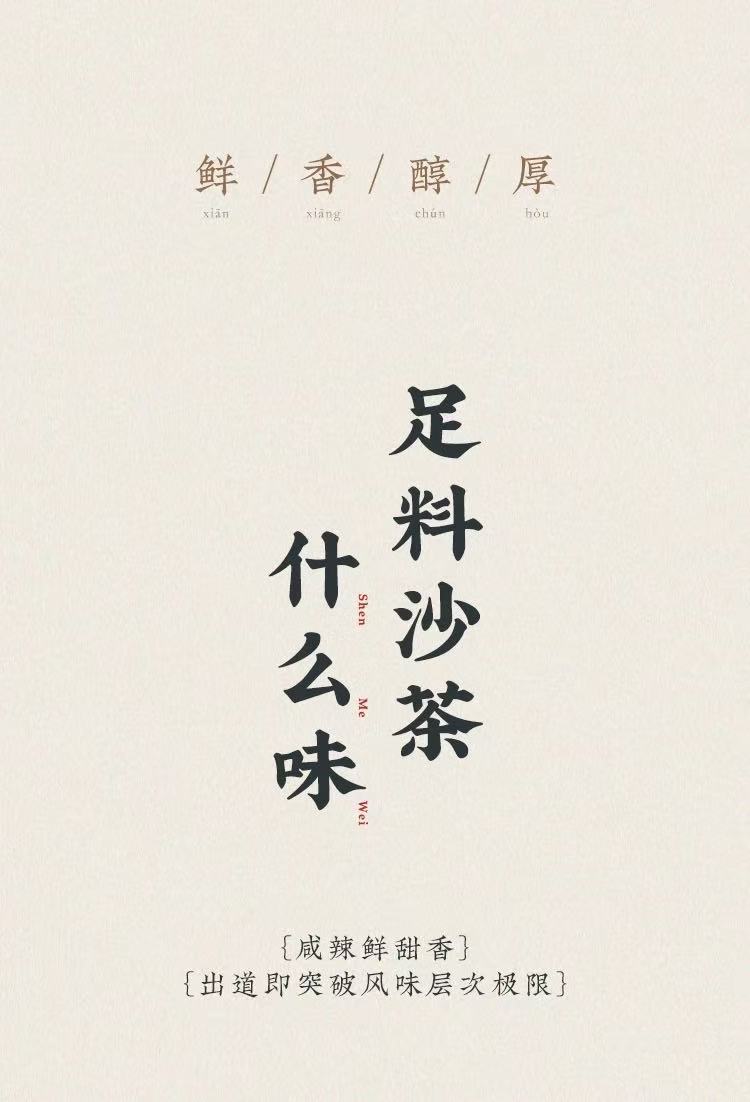 鲜/香/醇/厚
xiān xiāng chún hòu
足料沙茶
什么味
Shen Me Wei
{咸辣鲜甜香}
{出道即突破风味层次极限}